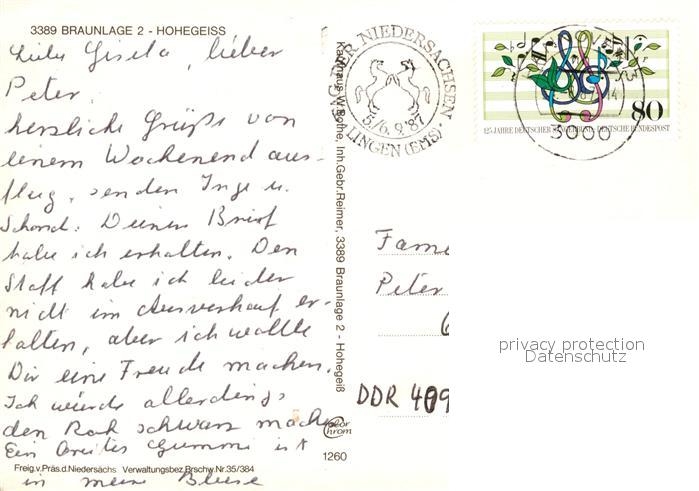 3389 BRAUNLAGE 2 - HOHEGEISS
Liebe Gisela, lieber
Peter,
herzliche Grüße von
einem Wochenendaus-
flug, senden Inge u.
Deinen Brief
habe ich erhalten. Den
Stoff habe ich leider
nicht im Ausverkauf er-
halten, aber ich wollte
Dir eine Freude machen.
Ich würde allerdings
den Rock schwarz machen
Ein breites Gummi ist
in meine Bluse
Freig.v.Präs.d.Niedersächs Verwaltungsbez.Brschw.Nr.35/384
Kaufhaus W.Bothe, Inh.Gebr.Reimer, 3389 Braunlage 2 - Hohegeiß
color
chrom
1260
TAG DER NIEDERSACHSEN
5./6.9.'87
LINGEN (EMS)
80
125 JAHRE DEUTSCHER SÄNGERBUND DEUTSCHE BUNDESPOST
3000
Fam
Peter
DDR 409
privacy protection
Datenschutz